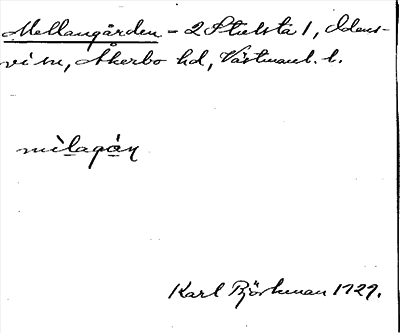 Mellangården – 2 Stulsta 1, Odens-
vi sn, Åkerbo hd, Västmanl. l.
mìlagàṇ
Karl Björkman 1929.